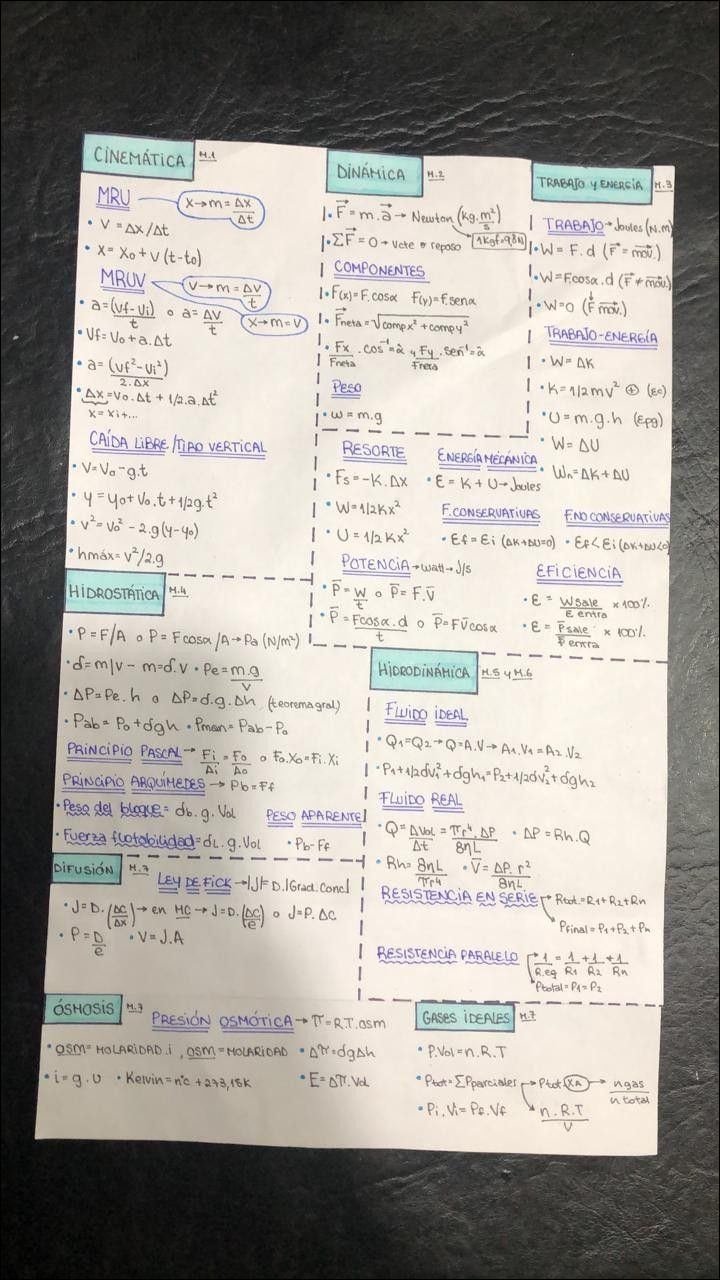 CINEMÁTICA M.1
MRU
X→m = Δx/Δt
• V = Δx/Δt
• X = X₀ + V (t-t₀)
MRUV
V→m = ΔV/t
X→m = V
• a = (Vf-Vi)/t o a = ΔV/t
• Vf = V₀ + a.Δt
• a = (Vf²-Vi²)/2.Δx
• Δx = V₀.Δt + 1/2.a.Δt²
X = Xi+...
CAÍDA LIBRE/TIRO VERTICAL
• V = V₀-g.t
• y = y₀ + V₀.t + 1/2g.t²
• V² = V₀² - 2.g(y-y₀)
• hmáx = V²/2.g
DINÁMICA M.2
1. F = m.a → Newton (kg.m²/s)
1kgf=9,8N
1. ΣF = 0 → Vcte o reposo
COMPONENTES
• F(x) = F.cosα F(y) = F.senα
• Fneta = √compx² + compy²
• Fx/Fneta . cos⁻¹ = α̂ y Fy/Fneta . sen⁻¹ = α̂
PESO
• w = m.g
TRABAJO y ENERGÍA M.3
TRABAJO → Joules (N.m)
• W = F.d (F = mov.)
• W = F.cosα.d (F ≠ mov.)
• W = 0 (↓F mov.)
TRABAJO-ENERGÍA
• W = ΔK
• K = 1/2mv² ⊕ (Ec)
• U = m.g.h (Epg)
• W = ΔU
• Wn = ΔK + ΔU
RESORTE
• Fs = -K.Δx
• W = 1/2Kx²
• U = 1/2Kx²
ENERGÍA MECÁNICA
• E = K + U → Joules
F.CONSERVATIVAS
• Ef = Ei (ΔK+ΔU=0)
F.NO CONSERVATIVAS
• Ef < Ei (ΔK+ΔU<0)
POTENCIA → watt → J/s
• P = W/t o P = F.V
• P = Fcosα.d/t o P = FVcosα
EFICIENCIA
• E = Wsale/E entra × 100%
• E = Psale/P entra × 100%
HIDROSTÁTICA M.4
• P = F/A o P = Fcosα/A → Pa (N/m²)
• d = m/v - m = d.V • Pe = m.g/V
• ΔP = Pe.h o ΔP = d.g.Δh (teorema gral)
• Pab = P₀ + dgh • Pman = Pab - P₀
PRINCIPIO PASCAL → Fi/Ai = Fo/Ao o Fo.Xo = Fi.Xi
PRINCIPIO ARQUÍMEDES → Pb = Ff
• Peso del bloque = db.g.Vol
• Fuerza flotabilidad = dL.g.Vol
PESO APARENTE
• Pb-Ff
HIDRODINÁMICA M.5 y M.6
FLUIDO IDEAL
• Q₁ = Q₂ → Q = A.V → A₁.V₁ = A₂.V₂
• P₁ + 1/2dv₁² + dgh₁ = P₂ + 1/2dv₂² + dgh₂
FLUIDO REAL
• Q = ΔVol/Δt = πr⁴.ΔP/8ηL • ΔP = Rh.Q
• Rh = 8ηL/πr4 • V = ΔP.r²/8ηL
RESISTENCIA EN SERIE → Rtot = R1+R2+Rn
Pfinal = P1+P2+Pn
RESISTENCIA PARALELO → 1/R.eq = 1/R1 + 1/R2 + 1/Rn
Ptotal = P1 = P2
DIFUSIÓN M.7
LEY DE FICK → |J| = D.|Grad.Conc|
• J = D.(ΔC/Δx) → en MC → J = D.(ΔC/e) o J = P.ΔC
• P = D/e • V = J.A
ÓSMOSIS M.7
PRESIÓN OSMÓTICA → π = R.T.osm
• osm = MOLARIDAD.i, osm = MOLARIDAD • Δπ = dgΔh
• i = g.υ • Kelvin = n°c + 273,15K • E = Δπ.Vol
GASES IDEALES M.7
• P.Vol = n.R.T
• Ptot = ΣPparciales → Ptot.XA → n gas/n total
• Pi.Vi = Pf.Vf n.R.T/V